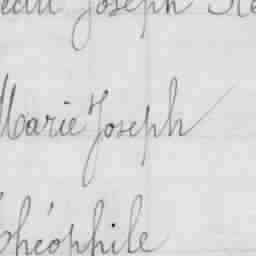 Jean Joseph
Marie Joseph
Théophile